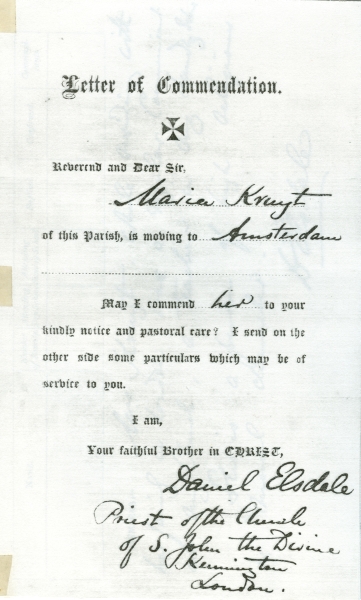 Letter of Commendation.
Reverend and Dear Sir,
Maria Kruyt
of this Parish, is moving to Amsterdam
May I commend her to your
kindly notice and pastoral care? I send on the
other side some particulars which may be of
service to you.
I am,
Your faithful Brother in CHRIST,
Daniel Elsdale
Priest of the Church
of S. John the Divine
Kennington
London.